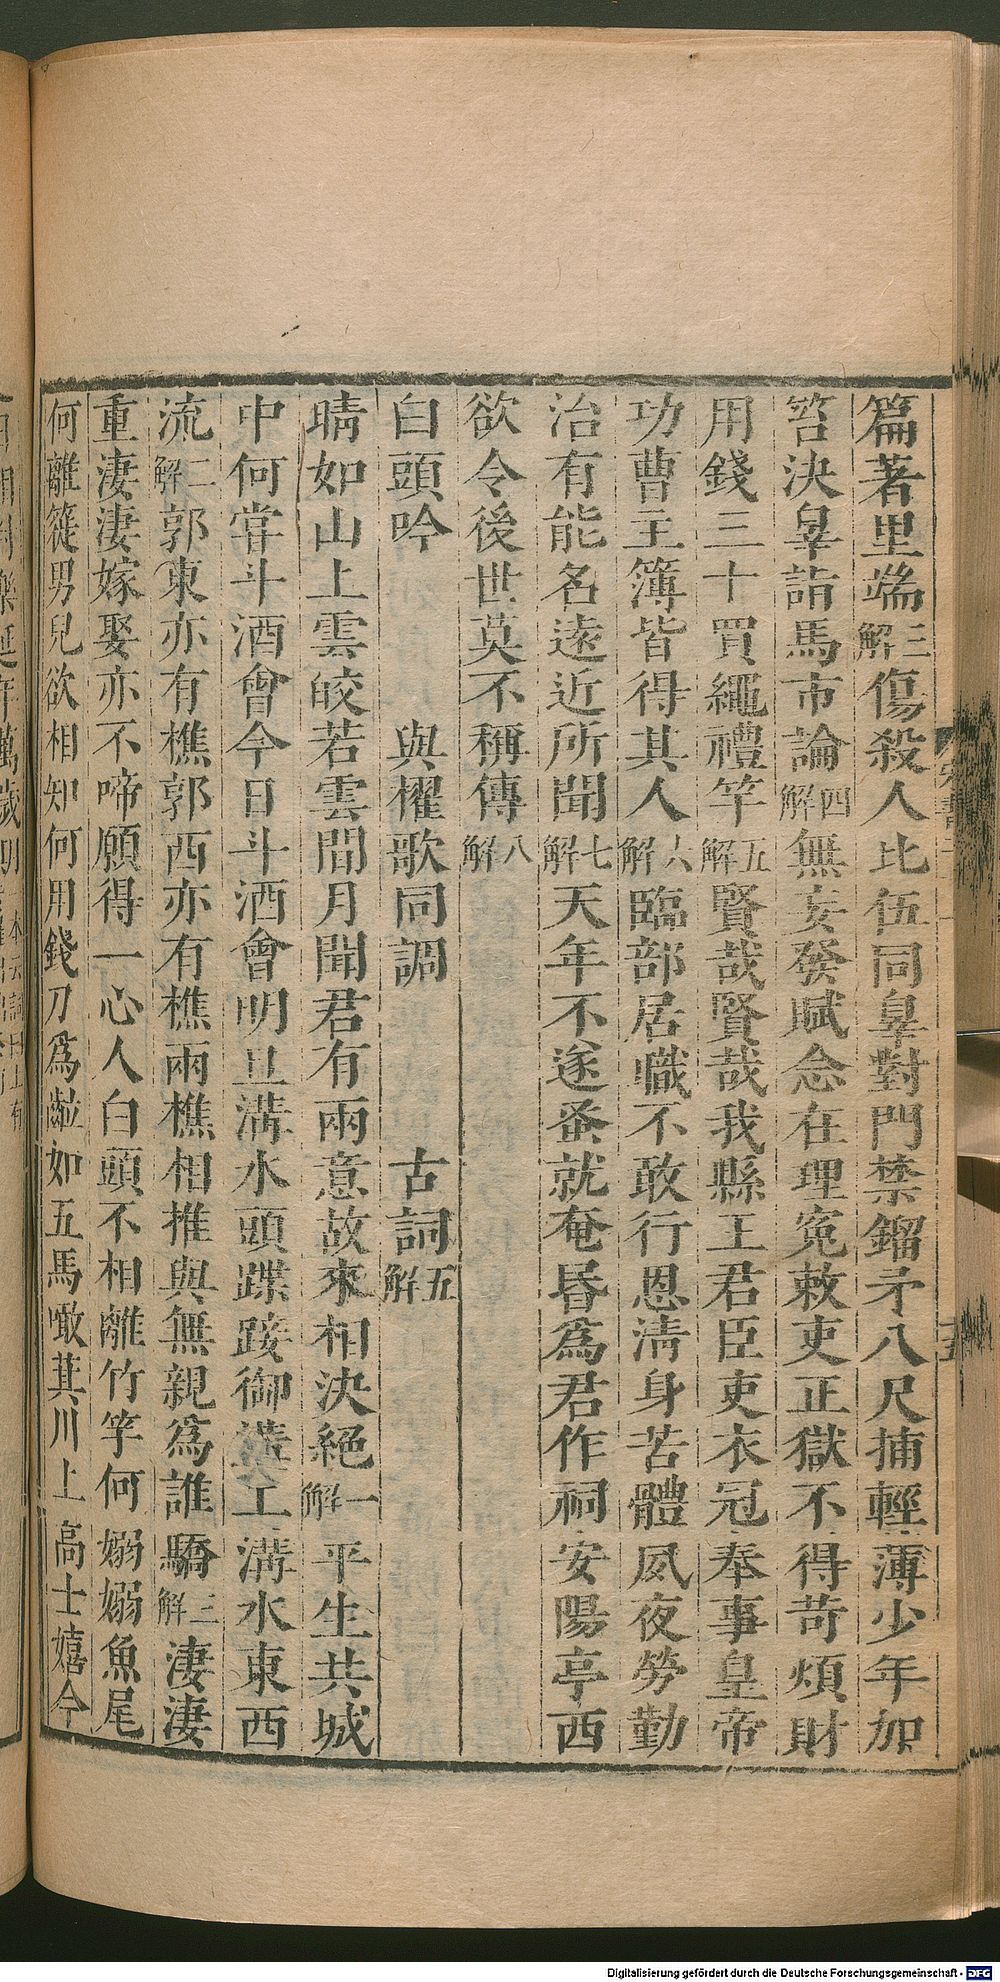 篇著里端三解傷殺人比伍同辠對門禁鎦矛八尺捕輕薄少年加
笞決辠詣馬市論四解無妄發賦念在理寃敕吏正獄不得苛煩財
用錢三十買繩禮竿五解賢哉賢哉我縣王君臣吏衣冠奉事皇帝
功曹主簿皆得其人六解臨部居職不敢行恩淸身苦體夙夜勞勤
治有能名遠近所聞七解天年不遂蚤就奄昬爲君作祠安陽亭西
欲令後世莫不稱傳八解
白頭吟 與櫂歌同調 古詞五解
晴如山上雲皎若雲間月聞君有兩意故來相決絕一解平生共城
中何嘗斗酒會今日斗酒會明旦溝水頭蹀踥御溝上溝水東西
流二解郭東亦有樵郭西亦有樵兩樵相推與無親爲誰驕三解淒淒
重淒淒嫁娶亦不啼願得一心人白頭不相離竹竿何嫋嫋魚尾
何離簁男兒欲相知何用錢刀爲齝如五馬噉萁川上高士嬉今
Digitalisierung gefördert durch die Deutsche Forschungsgemeinschaft - DFG